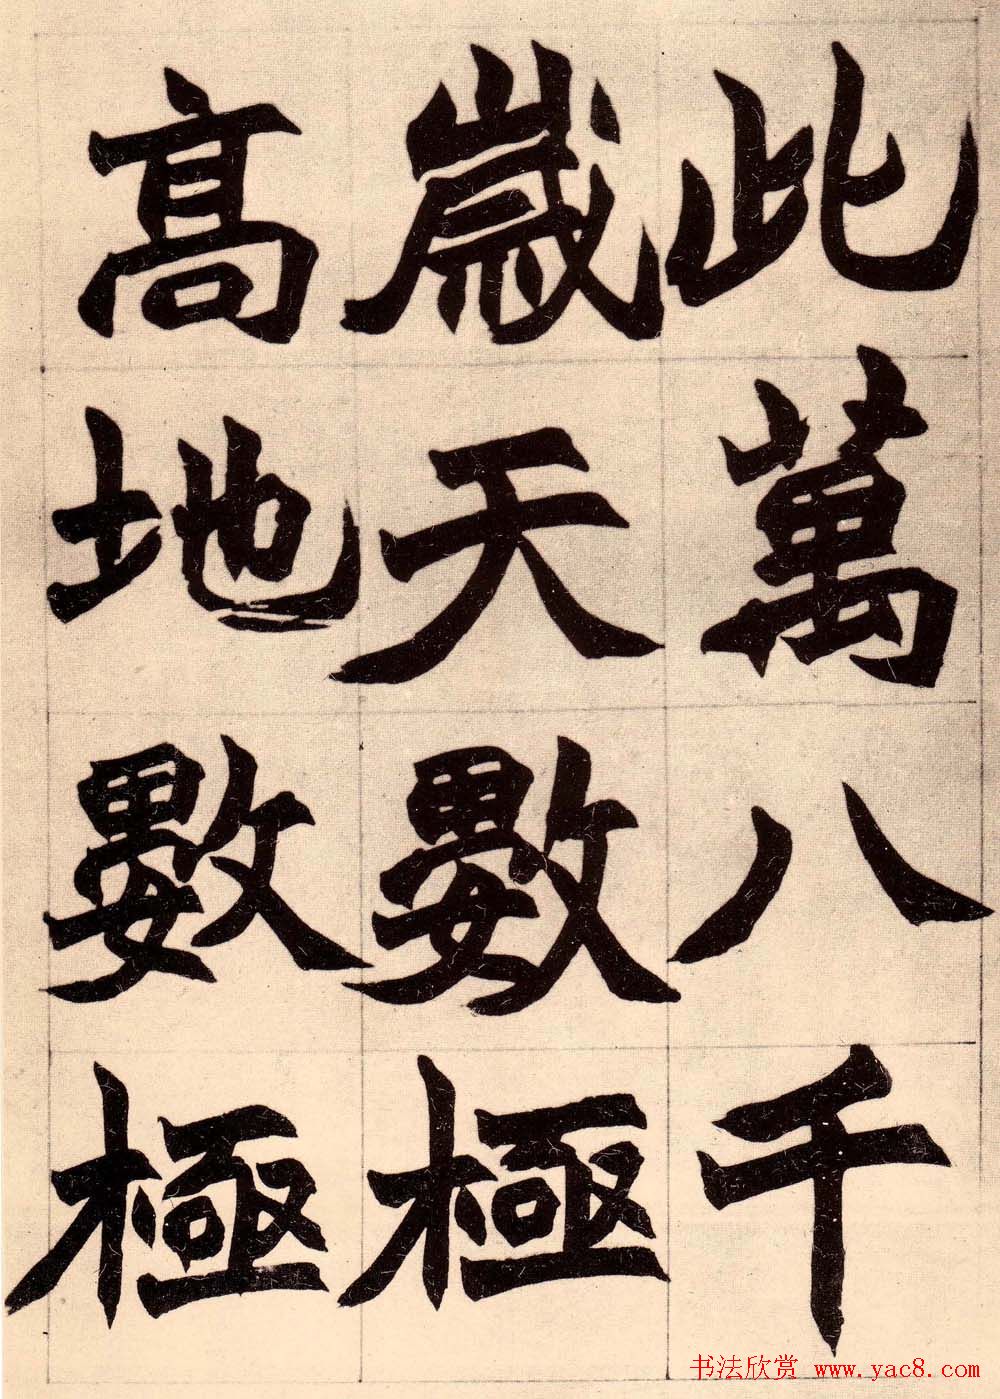 此萬八千
歲天數極
高地數極
书法欣赏 www.yac8.com